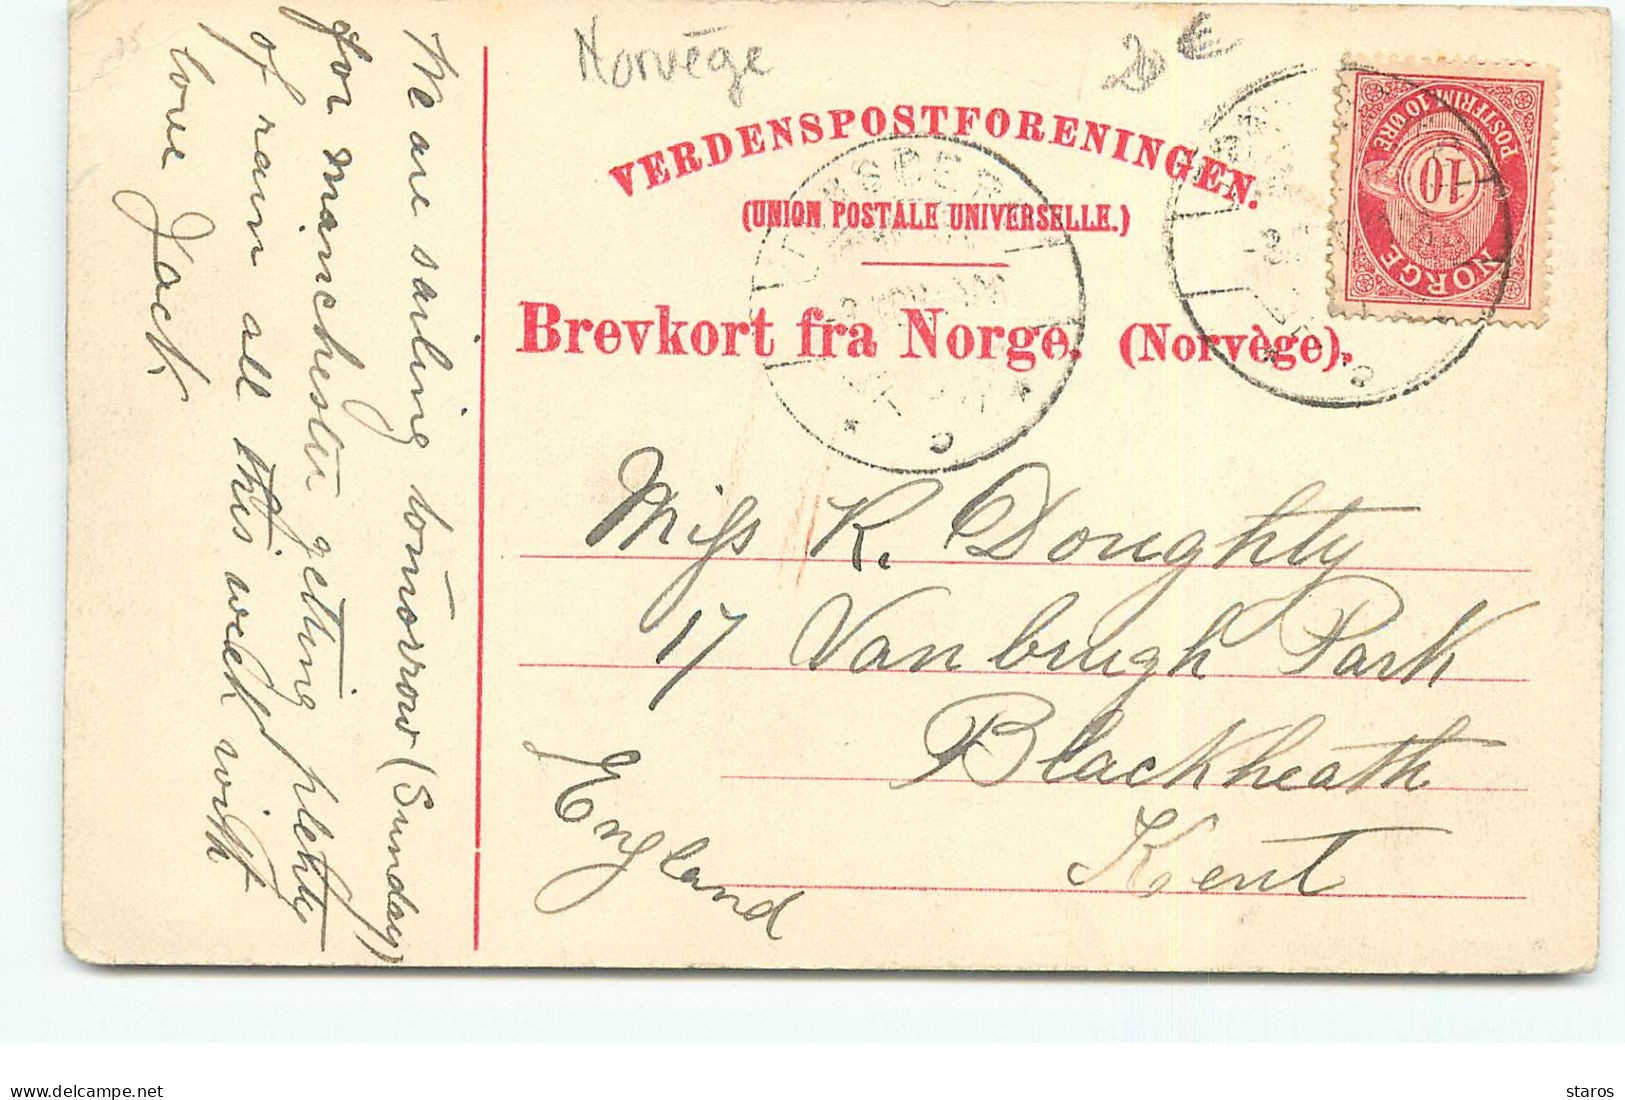 Norvège
20 €
VERDENSPOSTFORENINGEN.
(UNION POSTALE UNIVERSELLE.)
Brevkort fra Norge. (Norvège).
POSTFRIM. 10 ØRE
10
NORGE
We are sailing tomorrow (Sunday)
for manchester getting plenty
of rain all this week with
love Jack
Miss K. Doughty
17 Vanbrugh Park
Blackheath
Kent
England
staros